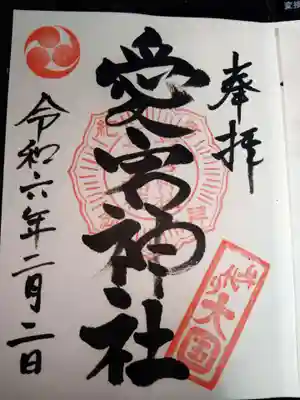 変換
奉拝
愛宕神社
令和六年二月二日
大国